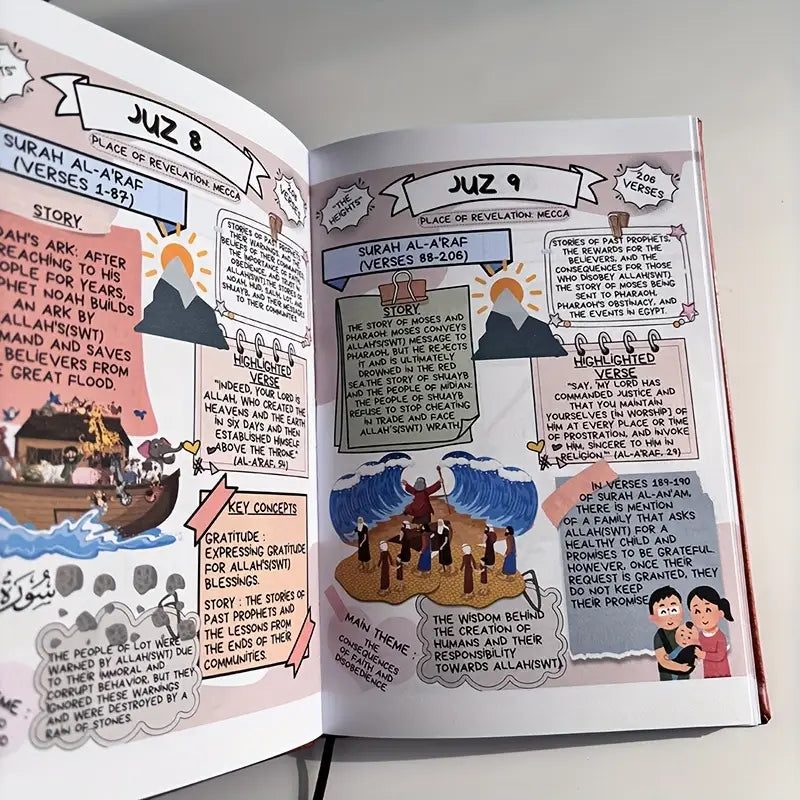 JUZ 8
PLACE OF REVELATION: MECCA
SURAH AL-A'RAF
(VERSES 1-87)
STORY
ARK: AFTER
TO HIS
FOR YEARS,
NOAH BUILDS
AN ARK BY
ALLAH'S(SWT)
AND SAVES
BELIEVERS FROM
GREAT FLOOD.
STORIES OF PAST
THE IMPORTANCE OF
OBEDIENCE, AND TRUST IN
ALLAH(SWT). THE STORIES OF
NOAH, HUD, SALIH, LOT, AND
SHUAYB, AND THEIR MESSAGES
TO THEIR COMMUNITIES.
HIGHLIGHTED
VERSE
"INDEED, YOUR LORD IS
ALLAH, WHO CREATED THE
HEAVENS AND THE EARTH
IN SIX DAYS AND THEN
ESTABLISHED HIMSELF
ABOVE THE THRONE."
(AL-A'RAF, 54)
KEY CONCEPTS
GRATITUDE :
EXPRESSING GRATITUDE
FOR ALLAH'S(SWT)
BLESSINGS.
STORY : THE STORIES OF
PAST PROPHETS AND
THE LESSONS FROM
THE ENDS OF THEIR
COMMUNITIES.
سورة
THE PEOPLE OF LOT WERE
WARNED BY ALLAH(SWT) DUE
TO THEIR IMMORAL AND
CORRUPT BEHAVIOR, BUT THEY
IGNORED THESE WARNINGS
AND WERE DESTROYED BY A
RAIN OF STONES.
JUZ 9
"THE
HEIGHTS"
206
VERSES
PLACE OF REVELATION: MECCA
SURAH AL-A'RAF
(VERSES 88-206)
STORY
THE STORY OF MOSES AND
PHARAOH: MOSES CONVEYS
ALLAH'S(SWT) MESSAGE TO
PHARAOH, BUT HE REJECTS
IT AND IS ULTIMATELY
DROWNED IN THE RED
SEA.THE STORY OF SHUAYB
AND THE PEOPLE OF MIDIAN:
THE PEOPLE OF SHUAYB
REFUSE TO STOP CHEATING
IN TRADE AND FACE
ALLAH'S(SWT) WRATH.
STORIES OF PAST PROPHETS,
THE REWARDS FOR THE
BELIEVERS, AND THE
CONSEQUENCES FOR THOSE
WHO DISOBEY ALLAH(SWT).
THE STORY OF MOSES
BEING SENT TO PHARAOH,
PHARAOH'S OBSTINACY, AND
THE EVENTS IN EGYPT.
HIGHLIGHTED
VERSE
"SAY, 'MY LORD HAS
COMMANDED JUSTICE AND
THAT YOU MAINTAIN
YOURSELVES [IN WORSHIP] OF
HIM AT EVERY PLACE OR TIME
OF PROSTRATION, AND INVOKE
HIM, SINCERE TO HIM IN
RELIGION.'" (AL-A'RAF, 29)
IN VERSES 189-190
OF SURAH AL-AN'AM,
THERE IS MENTION
OF A FAMILY THAT ASKS
ALLAH(SWT) FOR A
HEALTHY CHILD AND
PROMISES TO BE GRATEFUL.
HOWEVER, ONCE THEIR
REQUEST IS GRANTED, THEY
DO NOT KEEP
THEIR PROMISE
MAIN THEME :
THE
CONSEQUENCES
OF FAITH AND
DISOBEDIENCE
THE WISDOM BEHIND
THE CREATION OF
HUMANS AND THEIR
RESPONSIBILITY
TOWARDS ALLAH(SWT)